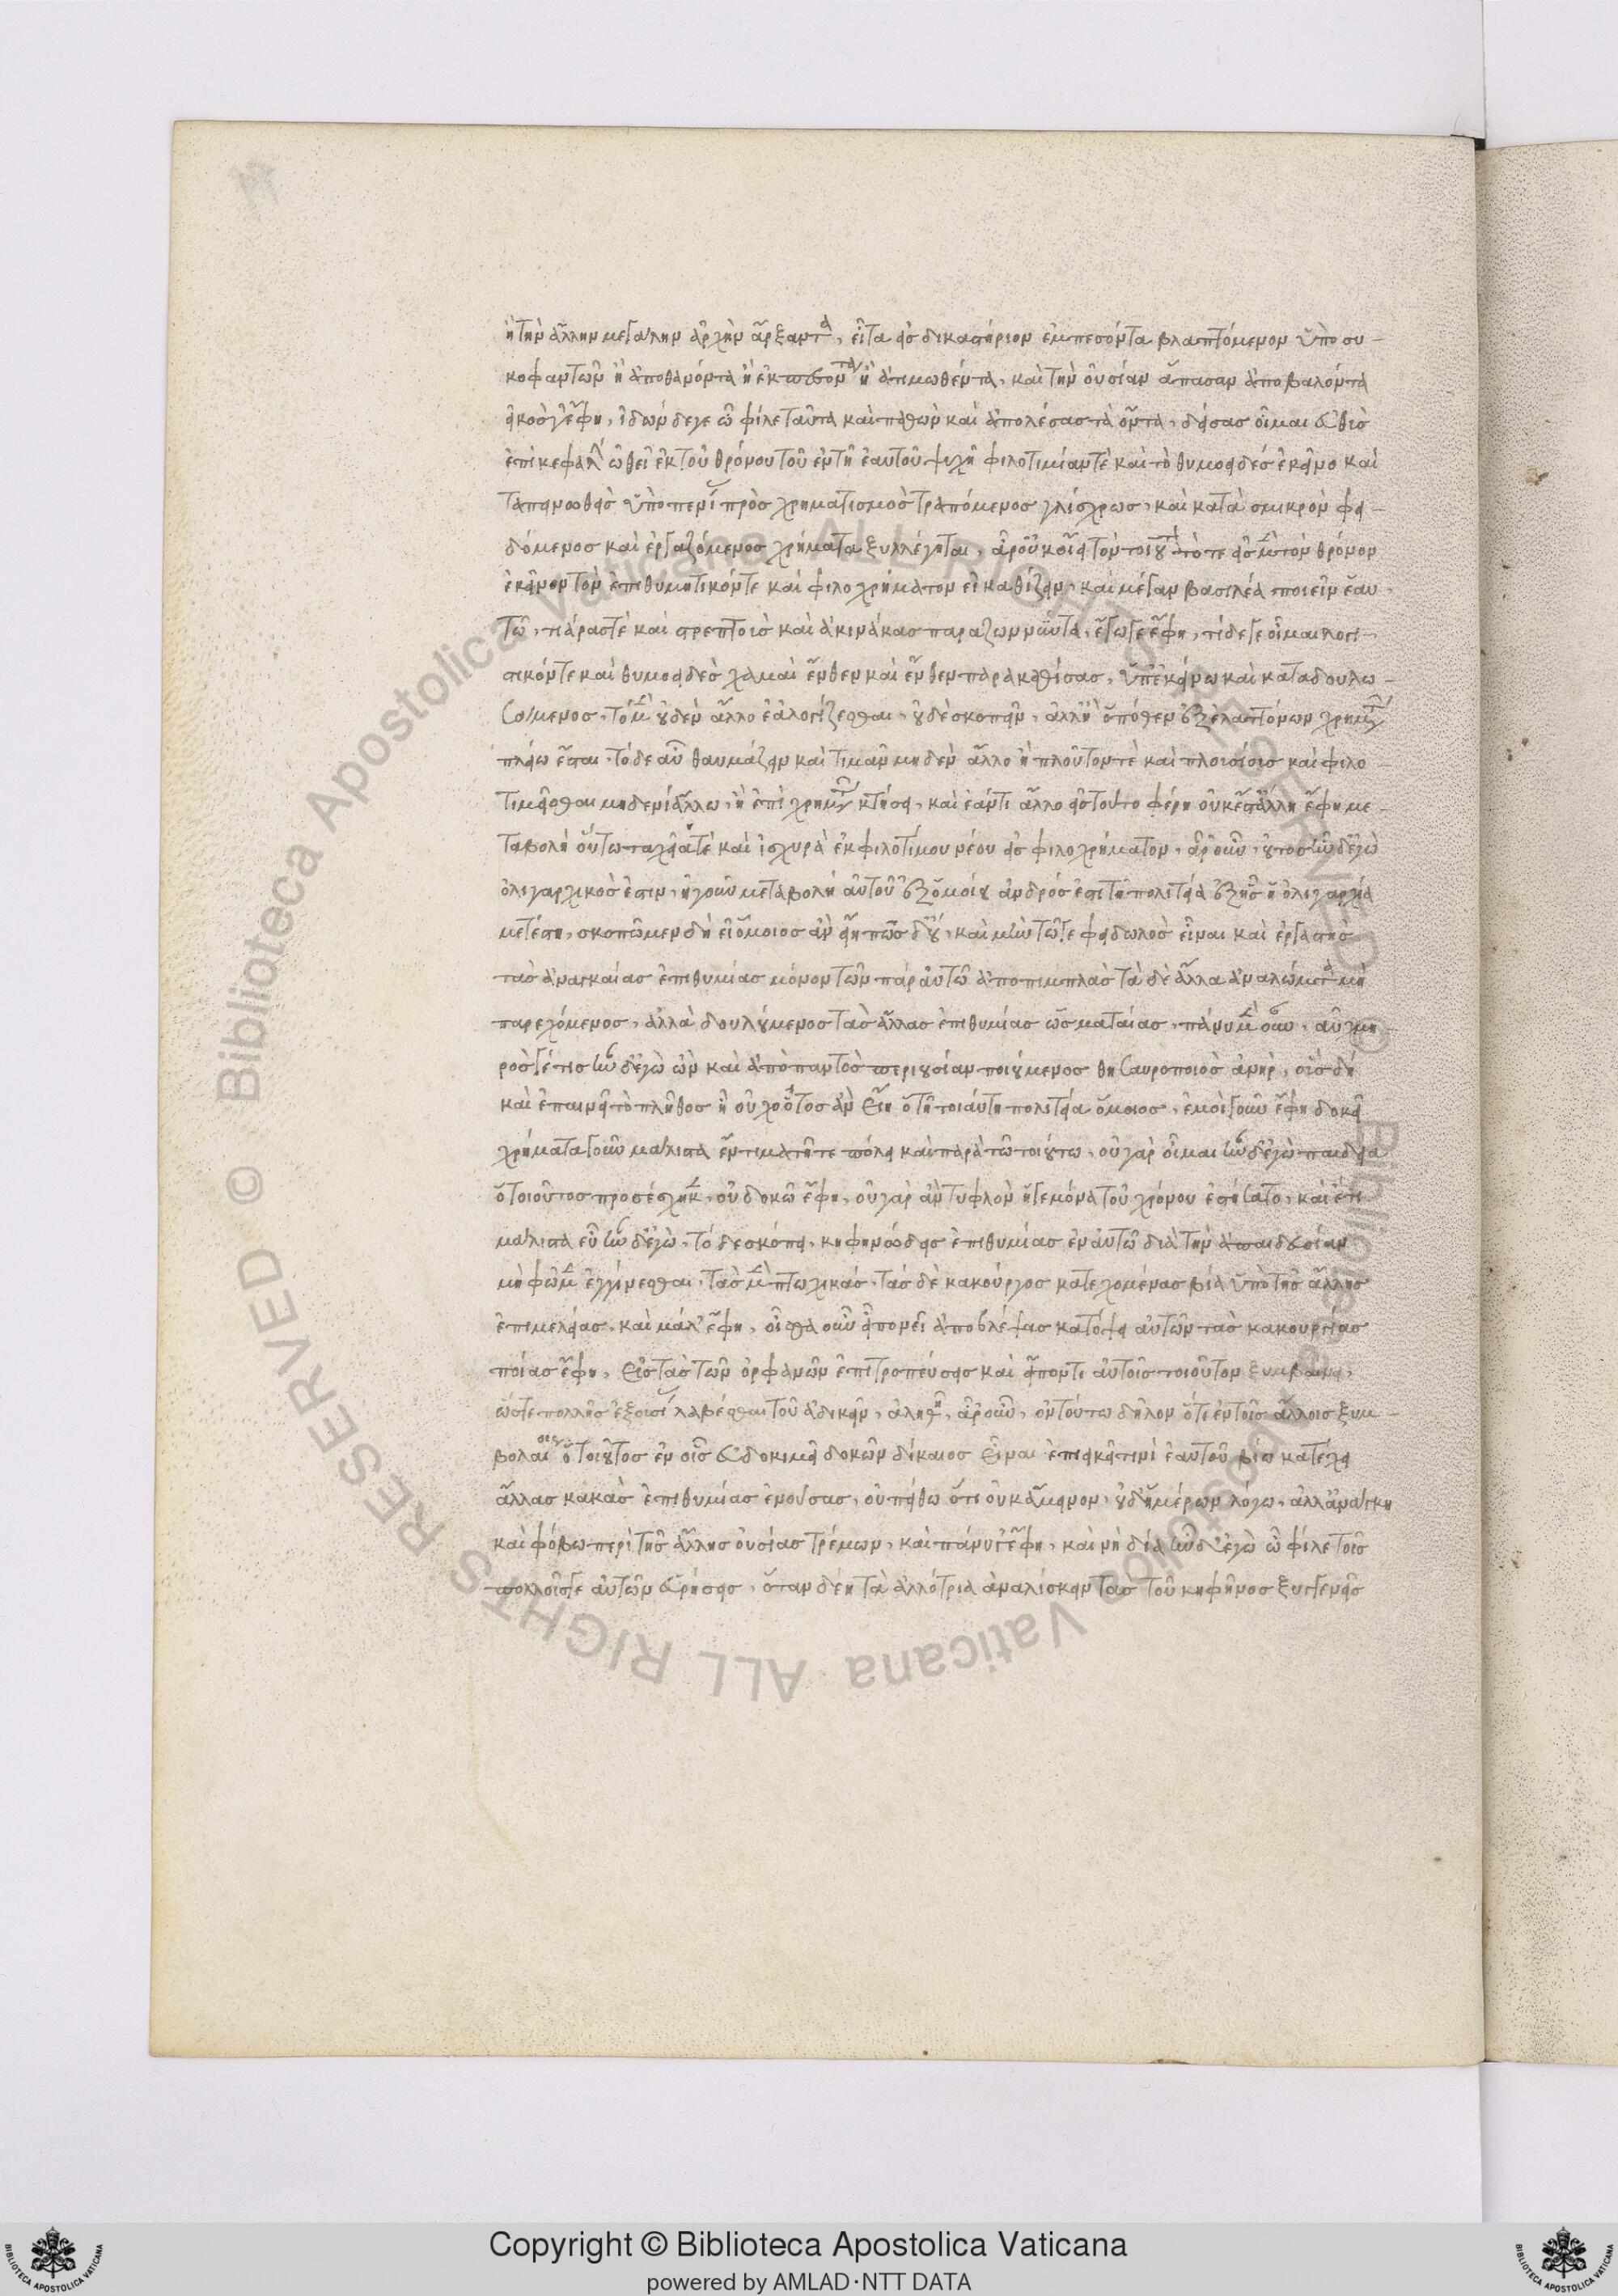 ἢ τὴν ἄλλην μεγάλην ἀρχὴν ἄρξαντα, εἶτα εἰς δικαστήριον ἐμπεσόντα βλαπτόμενον ὑπὸ συ-
κοφαντῶν ἢ ἀποθανόντα ἢ ἐκπεσόντα ἢ ἀτιμωθέντα, καὶ τὴν οὐσίαν ἅπασαν ἀποβαλόντα
εἰκός γ' ἔφη, ἰδὼν δέ γε ὦ φίλε ταῦτα καὶ παθὼν καὶ ἀπολέσας τὰ ὄντα, δείσας οἶμαι εὐθὺς
ἐπὶ κεφαλὴν ὠθεῖ ἐκ τοῦ θρόνου τοῦ ἐν τῇ ἑαυτοῦ ψυχῇ φιλοτιμίαν τὲ καὶ τὸ θυμοειδὲς ἐκεῖνο καὶ
ταπεινωθεὶς ὑπὸ πενίας πρὸς χρηματισμὸν τραπόμενος γλίσχρως, καὶ κατὰ σμικρὸν φει-
δόμενος καὶ ἐργαζόμενος χρήματα ξυλλέγηται, ἆρ' οὐκ οἴει τὸν τοιοῦτον τότε εἰς μὲν τὸν θρόνον
ἐκεῖνον τὸν ἐπιθυμητικόν τε καὶ φιλοχρήματον ἐγκαθίζειν, καὶ μέγαν βασιλέα ποιεῖν ἑαυ-
τῷ, τιάρας τὲ καὶ στρεπτοὺς καὶ ἀκινάκας παραζωννύντα, ἔγωγε ἔφη, τὸ δέ γε οἶμαι λογι-
στικόν τε καὶ θυμοειδὲς χαμαὶ ἔνθεν καὶ ἔνθεν παρακαθίσας, ὑπ' ἐκείνω καὶ καταδουλω-
σάμενος, τὸ μὲν οὐδὲν ἄλλο ἐᾶ λογίζεσθαι, οὐδὲ σκοπεῖν, ἀλλ' ἢ ὁπόθεν ἐξ ἐλαττόνων χρημάτων
πλείω ἔσται, τὸ δὲ αὖ θαυμάζειν καὶ τιμᾶν μηδὲν ἄλλο ἢ πλοῦτον τὲ καὶ πλουσίους καὶ φιλο-
τιμεῖσθαι μηδενὶ ἄλλω, ἢ ἐπὶ χρημάτων κτήσει, καὶ ἐάν τι ἄλλο εἰς τοῦτο φέρη οὐκ ἔστ' ἄλλη ἔφη με-
ταβολὴ οὕτω ταχεῖά τὲ καὶ ἰσχυρὰ ἐκ φιλοτίμου νέου εἰς φιλοχρήματον, ἆρ' οὖν, οὗτος ἦν δ' ἐγὼ
ὀλιγαρχικός ἐστιν, ἡ γοῦν μεταβολὴ αὐτοῦ ἐξ ὁμοίου ἀνδρός ἐστι τῇ πολιτεία ἐξ ἧς ἡ ὀλιγαρχία
μετέστη, σκοπῶμεν δὴ εἰ ὅμοιος ἂν εἴη
τὰς ἀναγκαίας ἐπιθυμίας μόνον τῶν παρ' αὐτῷ ἀποπιμπλὰς τὰ δὲ ἄλλα ἀναλώματα μὴ
παρεχόμενος, ἀλλὰ δουλούμενος τὰς ἄλλας ἐπιθυμίας ὡς ματαίας, πάνυ μὲν οὖν, αὐχμη
ρός γέ τις ἦν δ' ἐγὼ ὢν καὶ ἀπὸ παντὸς περιουσίαν ποιούμενος θησαυροποιὸς ἀνὴρ, οὓς δὴ
καὶ ἐπαινεῖ τὸ πλῆθος ἢ οὐχ οὗτος ἂν εἴη ὁ τῇ τοιαύτη πολιτεία ὅμοιος, ἐμοὶ γοῦν ἔφη δοκεῖ
χρήματα γοῦν μάλιστα ἔντιμα τῇ τε πόλει καὶ παρὰ τῷ τοιούτω, οὐ γὰρ οἶμαι ἦν δ' ἐγὼ παιδεία
ὁ τοιοῦτος προσέσχηκεν, οὐ δοκῶ ἔφη, οὐ γὰρ ἂν τυφλὸν ἡγεμόνα τοῦ χρόνου ἐστήσατο, καὶ ἔτι
μάλιστα εὖ ἦν δ' ἐγὼ, τό δε σκόπει, κηφηνώδεις ἐπιθυμίας ἐν αὐτῷ διὰ τὴν ἀπαιδευσίαν
μὴ φῶμεν ἐγγίνεσθαι, τὰς μὲν πτωχικάς, τὰς δὲ κακούργους κατεχομένας βία ὑπὸ τῆς ἄλλης
ἐπιμελείας, καὶ μάλ' ἔφη, οἶσθα οὖν εἶπον εἰ ἀποβλέψας κατόψει αὐτῶν τὰς κακουργίας
ποίας ἔφη, εἰς τὰς τῶν ὀρφανῶν ἐπιτροπεύσεις καὶ εἴ πού τι αὐτοῖς τοιοῦτον ξυμβαίνει,
ὥστε πολλῆς ἐξουσίας λαβέσθαι τοῦ ἀδικεῖν, ἀληθῆ, ἆρ' οὖν, οὐ τούτω δῆλον ὅτι ἐν τοῖς ἄλλοις ξυμ-
βολαίοις ὁ τοιοῦτος ἐν οἷς εὐδοκιμεῖ δοκῶν δίκαιος εἶναι ἐπιεικεῖ τινὶ ἑαυτοῦ βίω κατέχει
ἄλλας κακὰς ἐπιθυμίας ἐνούσας, οὐ πείθω ὅτι οὐκ ἄμεινον, οὐδ' ἡμέρων λόγω, ἀλλ' ἀνάγκη
καὶ φόβω περὶ τῆς ἄλλης οὐσίας τρέμων, καὶ πάνυ γ' ἔφη, καὶ νὴ δία ἦν δ' ἐγὼ ὦ φίλε τοῖς
πολλοῖς γε αὐτῶν εὑρήσεις, ὅταν δέῃ τὰ ἀλλότρια ἀναλίσκειν τὰς τοῦ κηφῆνος ξυγγενεῖς
© Biblioteca Apostolica Vaticana ALL RIGHTS RESERVED
Copyright © Biblioteca Apostolica Vaticana
powered by AMLAD·NTT DATA